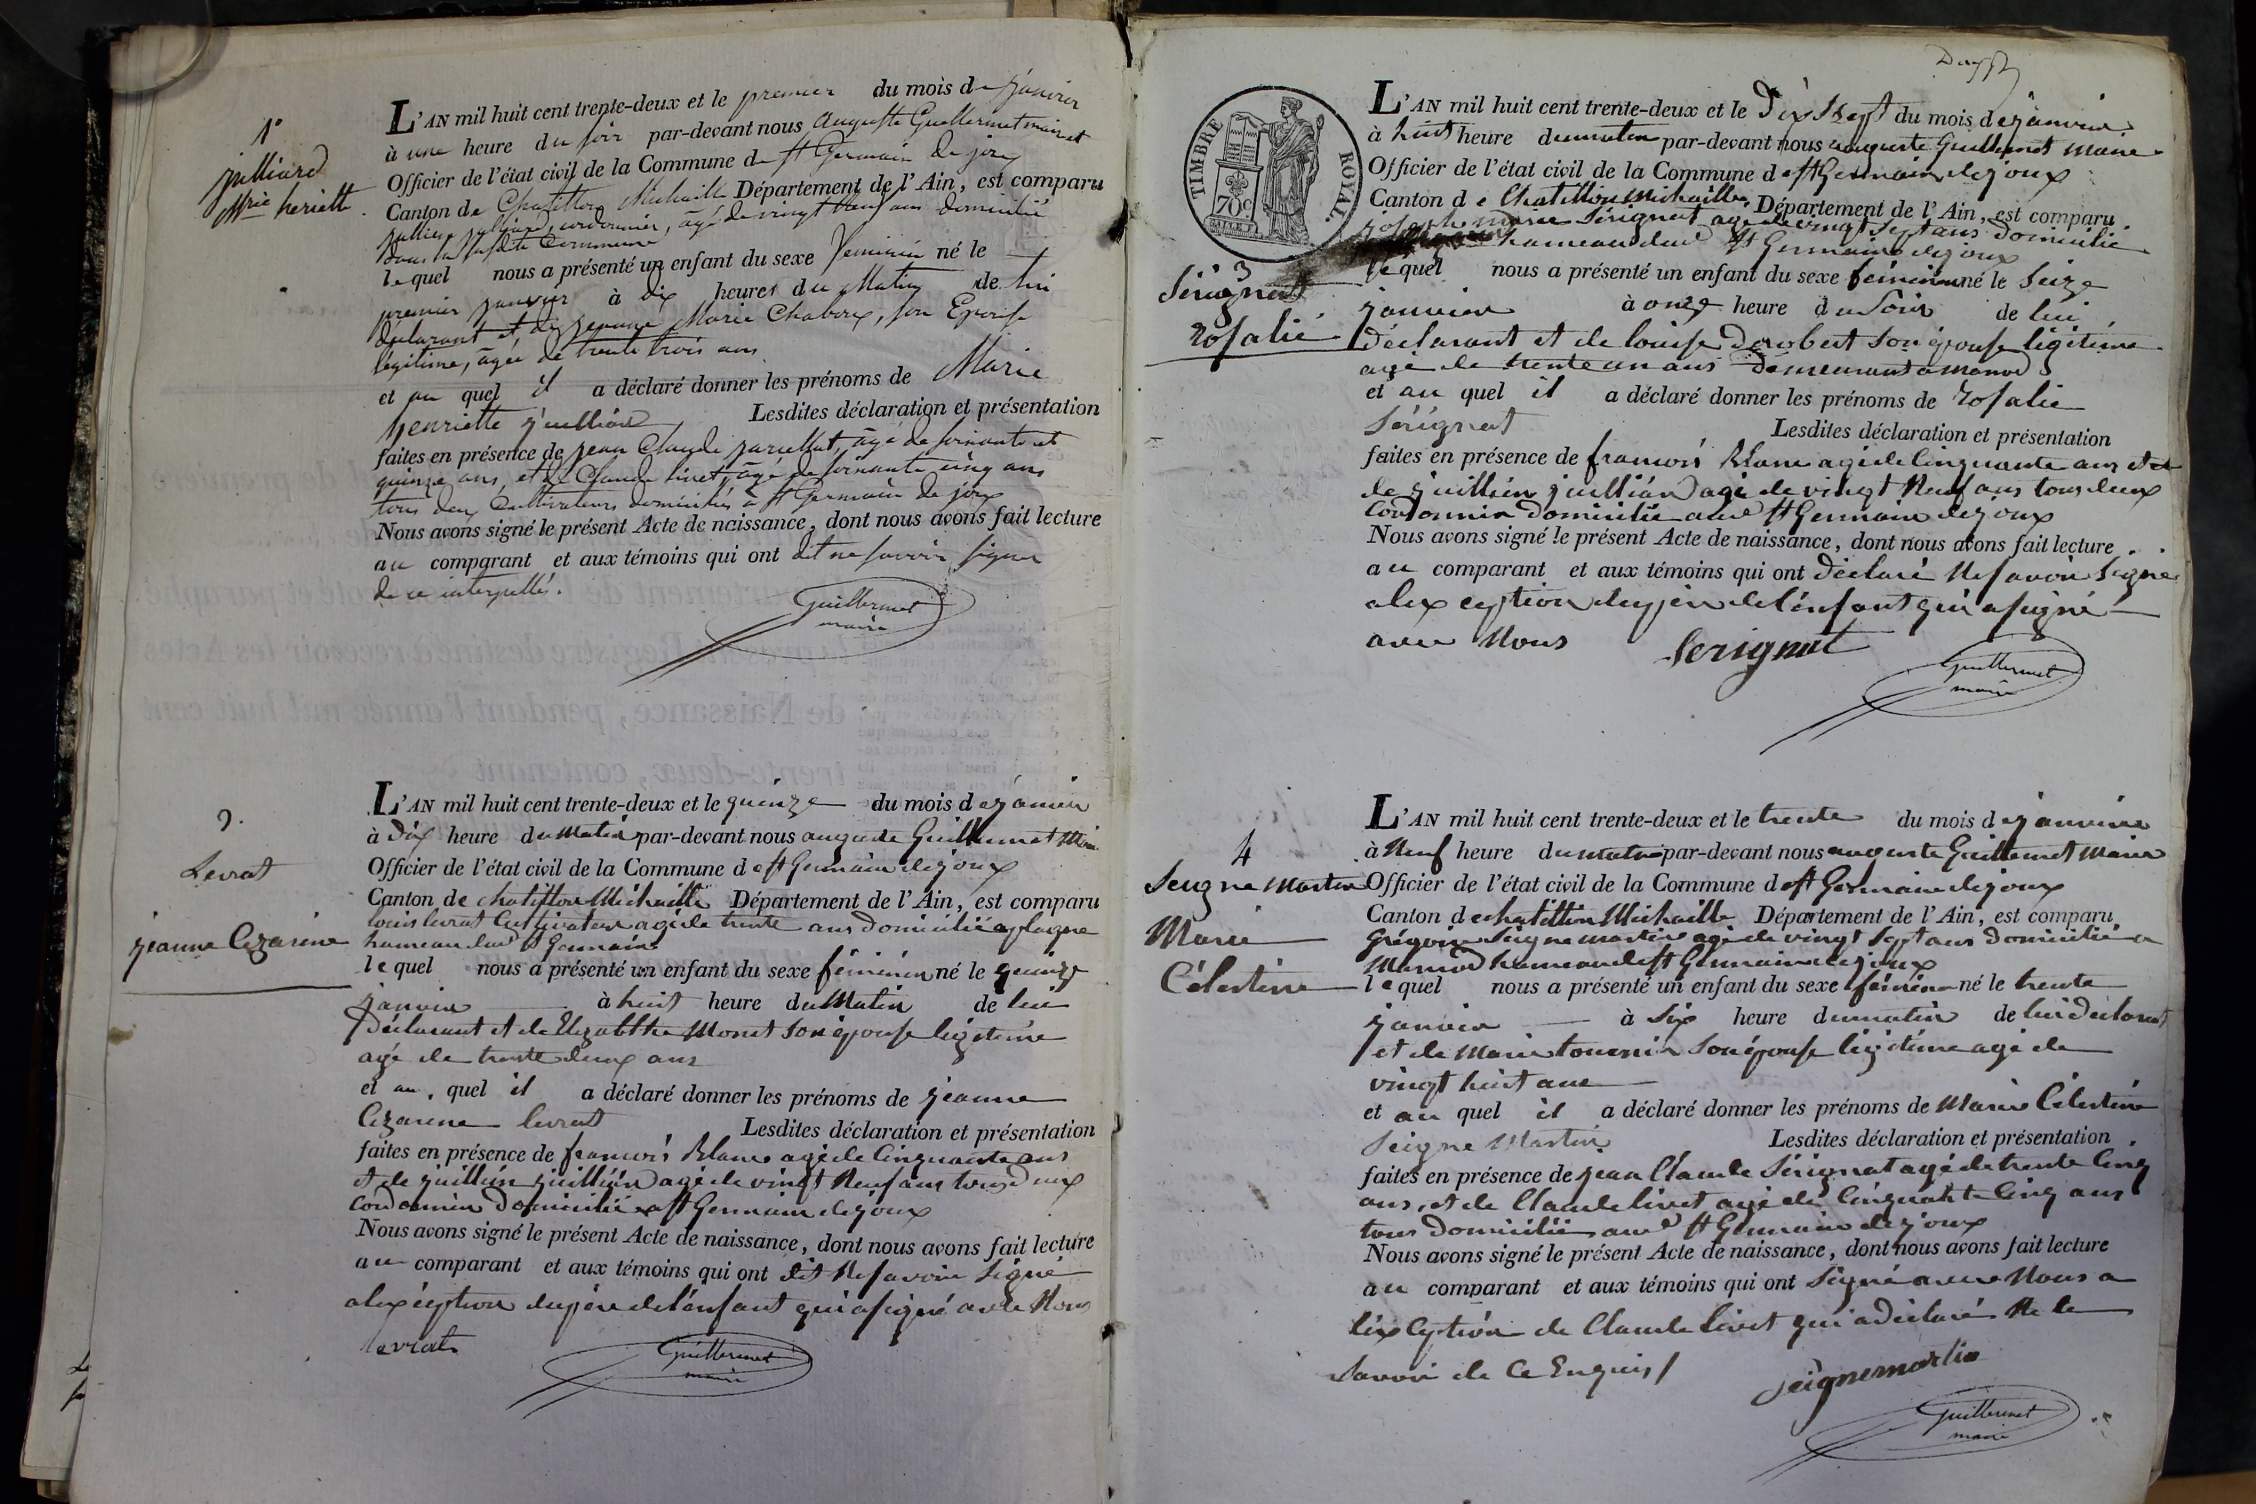 1°
julliard
Mrie heriette
L'AN mil huit cent trente-deux et le premier du mois de janvier
à une heure du soir par-devant nous Auguste Guillermet maire et
Officier de l'état civil de la Commune de st Germain de joux
Canton de Chatillon Michaille Département de l'Ain, est comparu
jullien julliard, cordonnier, âgé de vingt neuf ans domicilié
dans la susdite Commune
lequel nous a présenté un enfant du sexe feminin né le
premier janvier à dix heures du Matin de lui
déclarant et de jeanne Marie Chaboux, son Epouse
légitime, âgée de trente trois ans
et au quel il a déclaré donner les prénoms de Marie
henriette julliard Lesdites déclaration et présentation
faites en présence de jean Claude , âgé de soixante et
quinze ans, et de Claude livet, âgé de soixante cinq ans
tous deux Cultivateurs domiciliés à st Germain de joux
Nous avons signé le présent Acte de naissance, dont nous avons fait lecture
au comparant et aux témoins qui ont dit ne savoir signer
de ce interpellé.
Guillermet
maire
2.
Levrat
jeanne Cezarine
L'AN mil huit cent trente-deux et le quinze du mois de janvier
à dix heure du matin par-devant nous auguste Guillermet Maire
Officier de l'état civil de la Commune de st Germain dejoux
Canton de chatillon Michaille Département de l'Ain, est comparu
louis levrat Cultivateur agé de trente ans domicilié a plagne
hameau dud st Germain
lequel nous a présenté un enfant du sexe féminin né le quinze
janvier à huit heure du Matin de lui
Déclarant et de Elezabethe Monet son épouse légitime
agé de trente deux ans
et au quel il a déclaré donner les prénoms de jeanne
Cezarine levrat Lesdites déclaration et présentation
faites en présence de francois Blanc agé de Cinquante ans
et de juillien juilliard agé de vingt Neuf ans tous deux
Cordonnier Domicilié a st Germain dejoux
Nous avons signé le présent Acte de naissance, dont nous avons fait lecture
au comparant et aux témoins qui ont dit Ne savoir Signé
alexception dupère de l'énfant qui a signé avec Nous
levrat
Guillermet
maire
TIMBRE ROYAL.
70c
3
Sérignat
rosalié
L'AN mil huit cent trente-deux et le Dix Sept du mois de janvier
à huit heure dumatin par-devant nous auguste Guillermet Maire
Officier de l'état civil de la Commune de st Germain dejoux
Canton de Chatillon Michaille Département de l'Ain, est comparu
joseph marie Sérignat agé de vingt Sept ans domicilié
hameau dud st Germain dejoux
lequel nous a présenté un enfant du sexe féminin né le Seize
janvier à onze heure du Soir de lui
Déclarant et de louise Derobert Son épouse légitime
agé de trente un ans Demeurant a Marnod
et au quel il a déclaré donner les prénoms de rosalie
Sérignat Lesdites déclaration et présentation
faites en présence de francois Blanc agé de Cinquante ans et
de juillien juilliard agé de vingt Neuf ans tous deux
Cordonnier Domicilié aud st Germain dejoux
Nous avons signé le présent Acte de naissance, dont nous avons fait lecture
au comparant et aux témoins qui ont Déclaré Ne savoir Signé
alexception dupère de l'énfant qui a signé
avec Nous Serignat
Guillermet
maire
4
Seigne Martin
Marie
Célestine
L'AN mil huit cent trente-deux et le trente du mois de janvier
à Neuf heure dumatin par-devant nous auguste Guillermet Maire
Officier de l'état civil de la Commune de st Germain dejoux
Canton de chatillon Michaille Département de l'Ain, est comparu
Grégoire Seigne martin agé de vingt Sept ans Domicilié a
Marnod hameau de st Germain dejoux
lequel nous a présenté un enfant du sexe féminin né le trente
janvier à Six heure dumatin de lui déclarant
et de Marie tournier Son épouse légitime agé de
vingt huit ans
et au quel il a déclaré donner les prénoms de Marie Célestine
Seigne Martin Lesdites déclaration et présentation
faites en présence de jean Claude Sérignat agé de trente Cinq
ans, et de Claude livet agé de Cinquante Cinq ans
tous Domicilié aud st Germain dejoux
Nous avons signé le présent Acte de naissance, dont nous avons fait lecture
au comparant et aux témoins qui ont Signé avec Nous a
l'éxCeption de Claude livet qui a déclaré Ne le
Savoir de Ce Enquis/
Seignemartin
Guillermet
maire